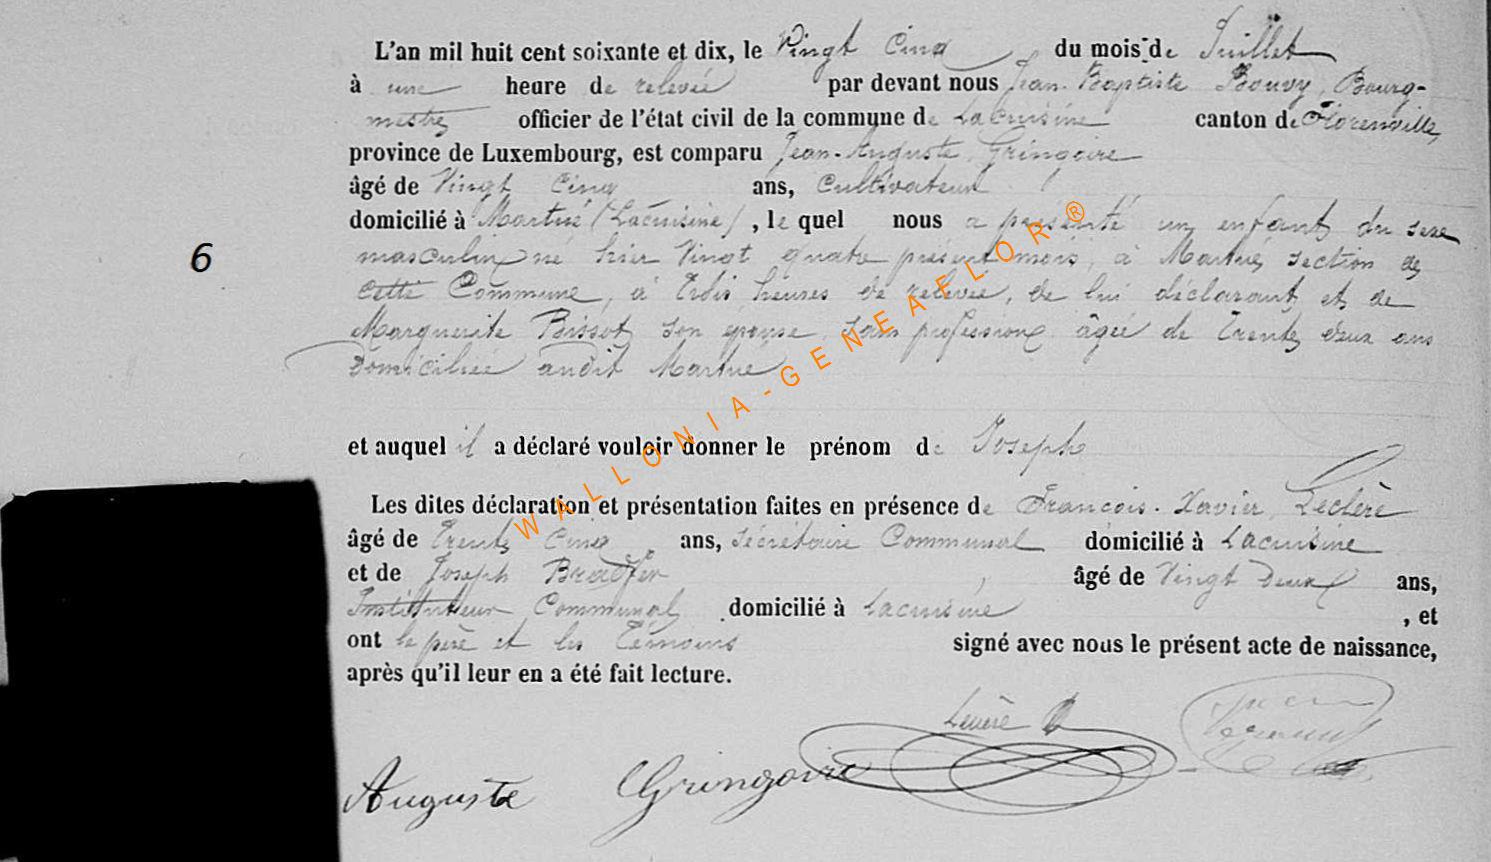 L'an mil huit cent soixante et dix, le Vingt Cinq du mois de Juillet
à une heure de relevée par devant nous Jean-Baptiste Bouvy, Bourg-
mestre officier de l'état civil de la commune de Lacuisine canton de Florenville,
province de Luxembourg, est comparu Jean-Auguste Gringoire
âgé de Vingt Cinq ans, Cultivateur
domicilié à Martué (Lacuisine), le quel nous a présenté un enfant du sexe
6
masculin né hier Vingt quatre présent mois, à Martué, section de
cette Commune, à Trois heures de relevée, de lui déclarant et de
Marguerite Bissot son épouse, sans profession âgée de Trente deux ans
Domiciliée audit Martué
et auquel il a déclaré vouloir donner le prénom de Joseph
Les dites déclaration et présentation faites en présence de François-Xavier Leclère
âgé de Trente Cinq ans, Secrétaire Communal domicilié à Lacuisine
et de Joseph Bradfer, âgé de Vingt Deux ans,
Instituteur Communal domicilié à Lacuisine, et
ont le père et les Témoins signé avec nous le présent acte de naissance,
après qu'il leur en a été fait lecture.
Auguste Gringoire
WALLONIA-GENEAFLOR®